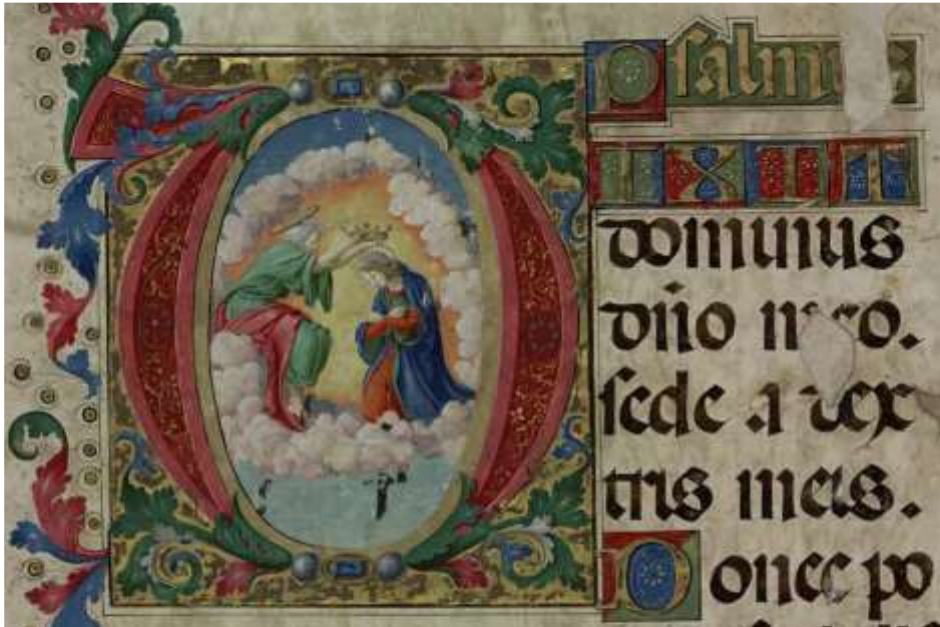 Psalmu
DIXIT
dominus
dño meo.
sede a dex
tris meis.
Donec po